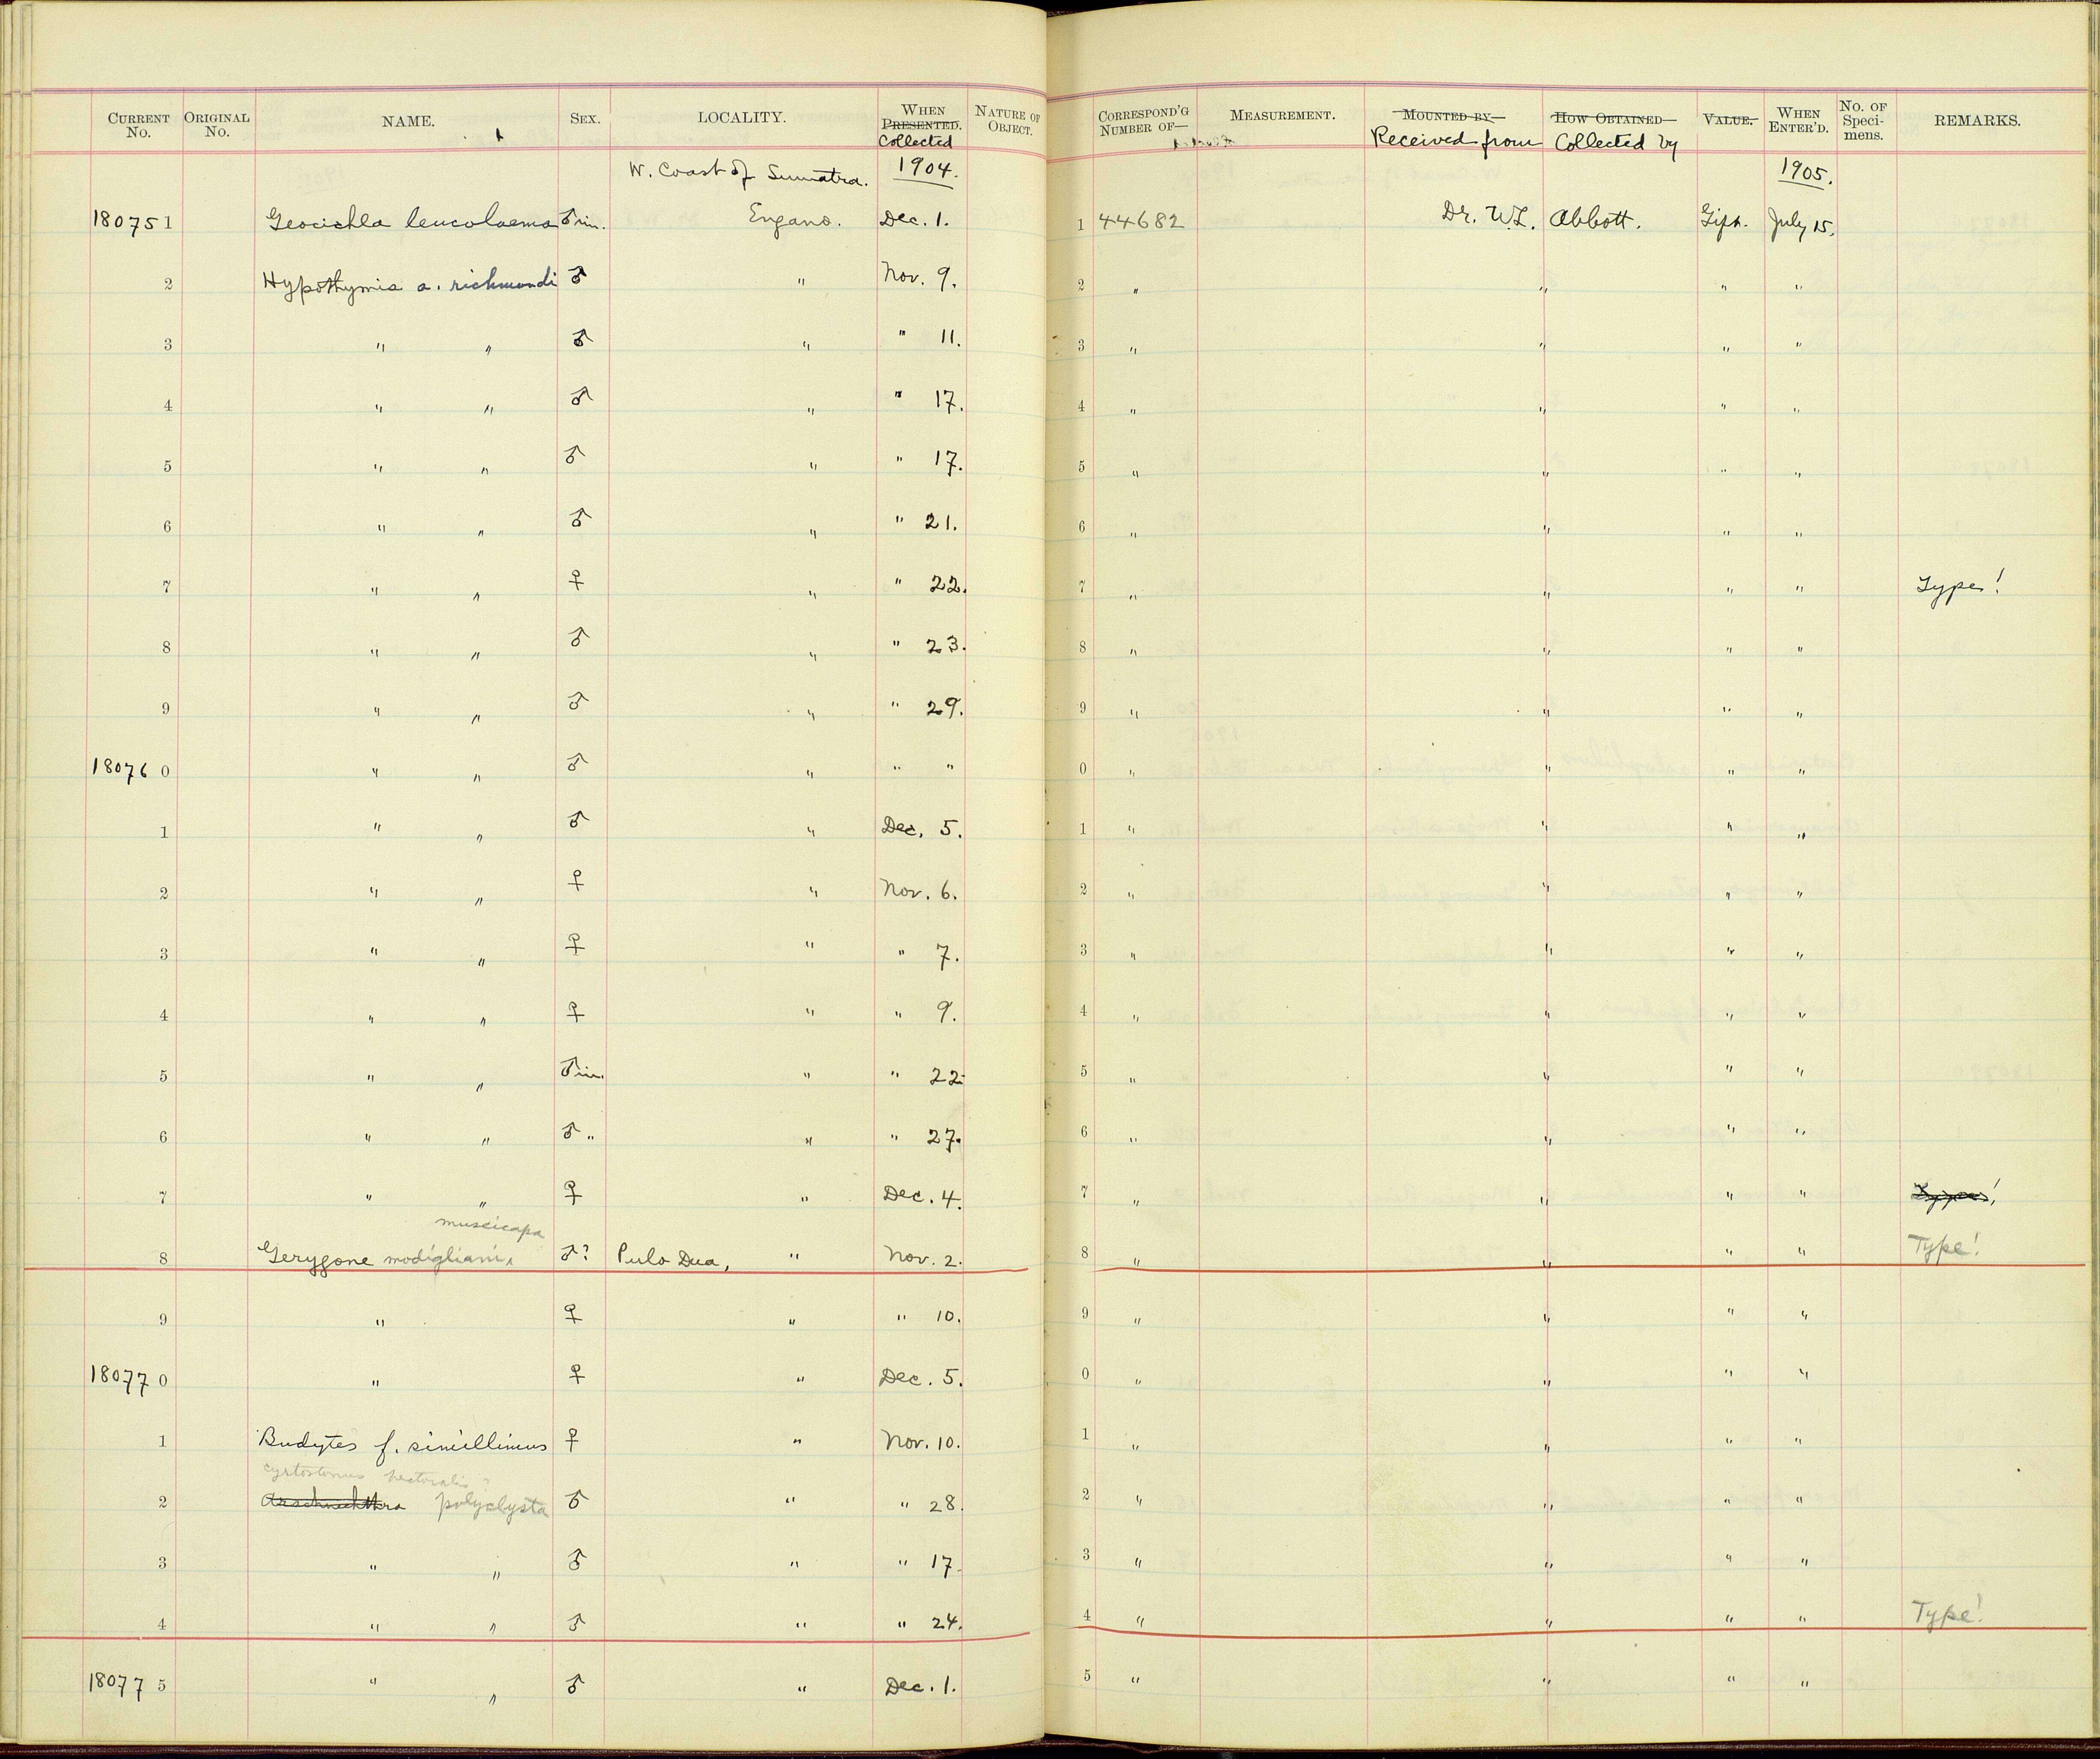 CURRENT No. ORIGINAL No. NAME. SEX. LOCALITY. WHEN PRESENTED. Collected NATURE OF OBJECT. CORRESPOND'G NUMBER OF— MEASUREMENT. MOUNTED BY— Received from HOW OBTAINED— Collected by VALUE. WHEN ENTER'D. No. OF Specimens. REMARKS.
W. Coast of Sumatra. 1904. 1905.
180751 Geocichla leucolaema ♂ im. Engano. Dec. 1. 1 44682 Dr. W.L. Abbott. Gift. July 15.
2 Hypothymis a. richmondi ♂ " Nov. 9. 2 " " " "
3 " " ♂ " " 11. 3 " " " "
4 " " ♂ " " 17. 4 " " " "
5 " " ♂ " " 17. 5 " " " "
6 " " ♂ " " 21. 6 " " " "
7 " " ♀ " " 22. 7 " " " " Type!
8 " " ♂ " " 23. 8 " " " "
9 " " ♂ " " 29. 9 " " " "
180760 " " ♂ " " " 0 " " " "
1 " " ♂ " Dec. 5. 1 " " " "
2 " " ♀ " Nov. 6. 2 " " " "
3 " " ♀ " " 7. 3 " " " "
4 " " ♀ " " 9. 4 " " " "
5 " " ♂ im. " " 22. 5 " " " "
6 " " ♂ " " " 27. 6 " " " "
7 " " ♀ " Dec. 4. 7 " " " " Type!
muscicapa
8 Gerygone modigliani ♂? Pulo Dua, " Nov. 2. 8 " " " " Type!
9 " ♀ " " 10. 9 " " " "
180770 " ♀ " Dec. 5. 0 " " " "
1 Budytes f. simillimus ♀ " Nov. 10. 1 " " " "
Cyrtostomus pectoralis?
2 Arachnechthra polyclysta ♂ " " 28. 2 " " " "
3 " " ♂ " " 17. 3 " " " "
4 " " ♂ " " 24. 4 " " " " Type!
180775 " " ♂ " Dec. 1. 5 " " " "